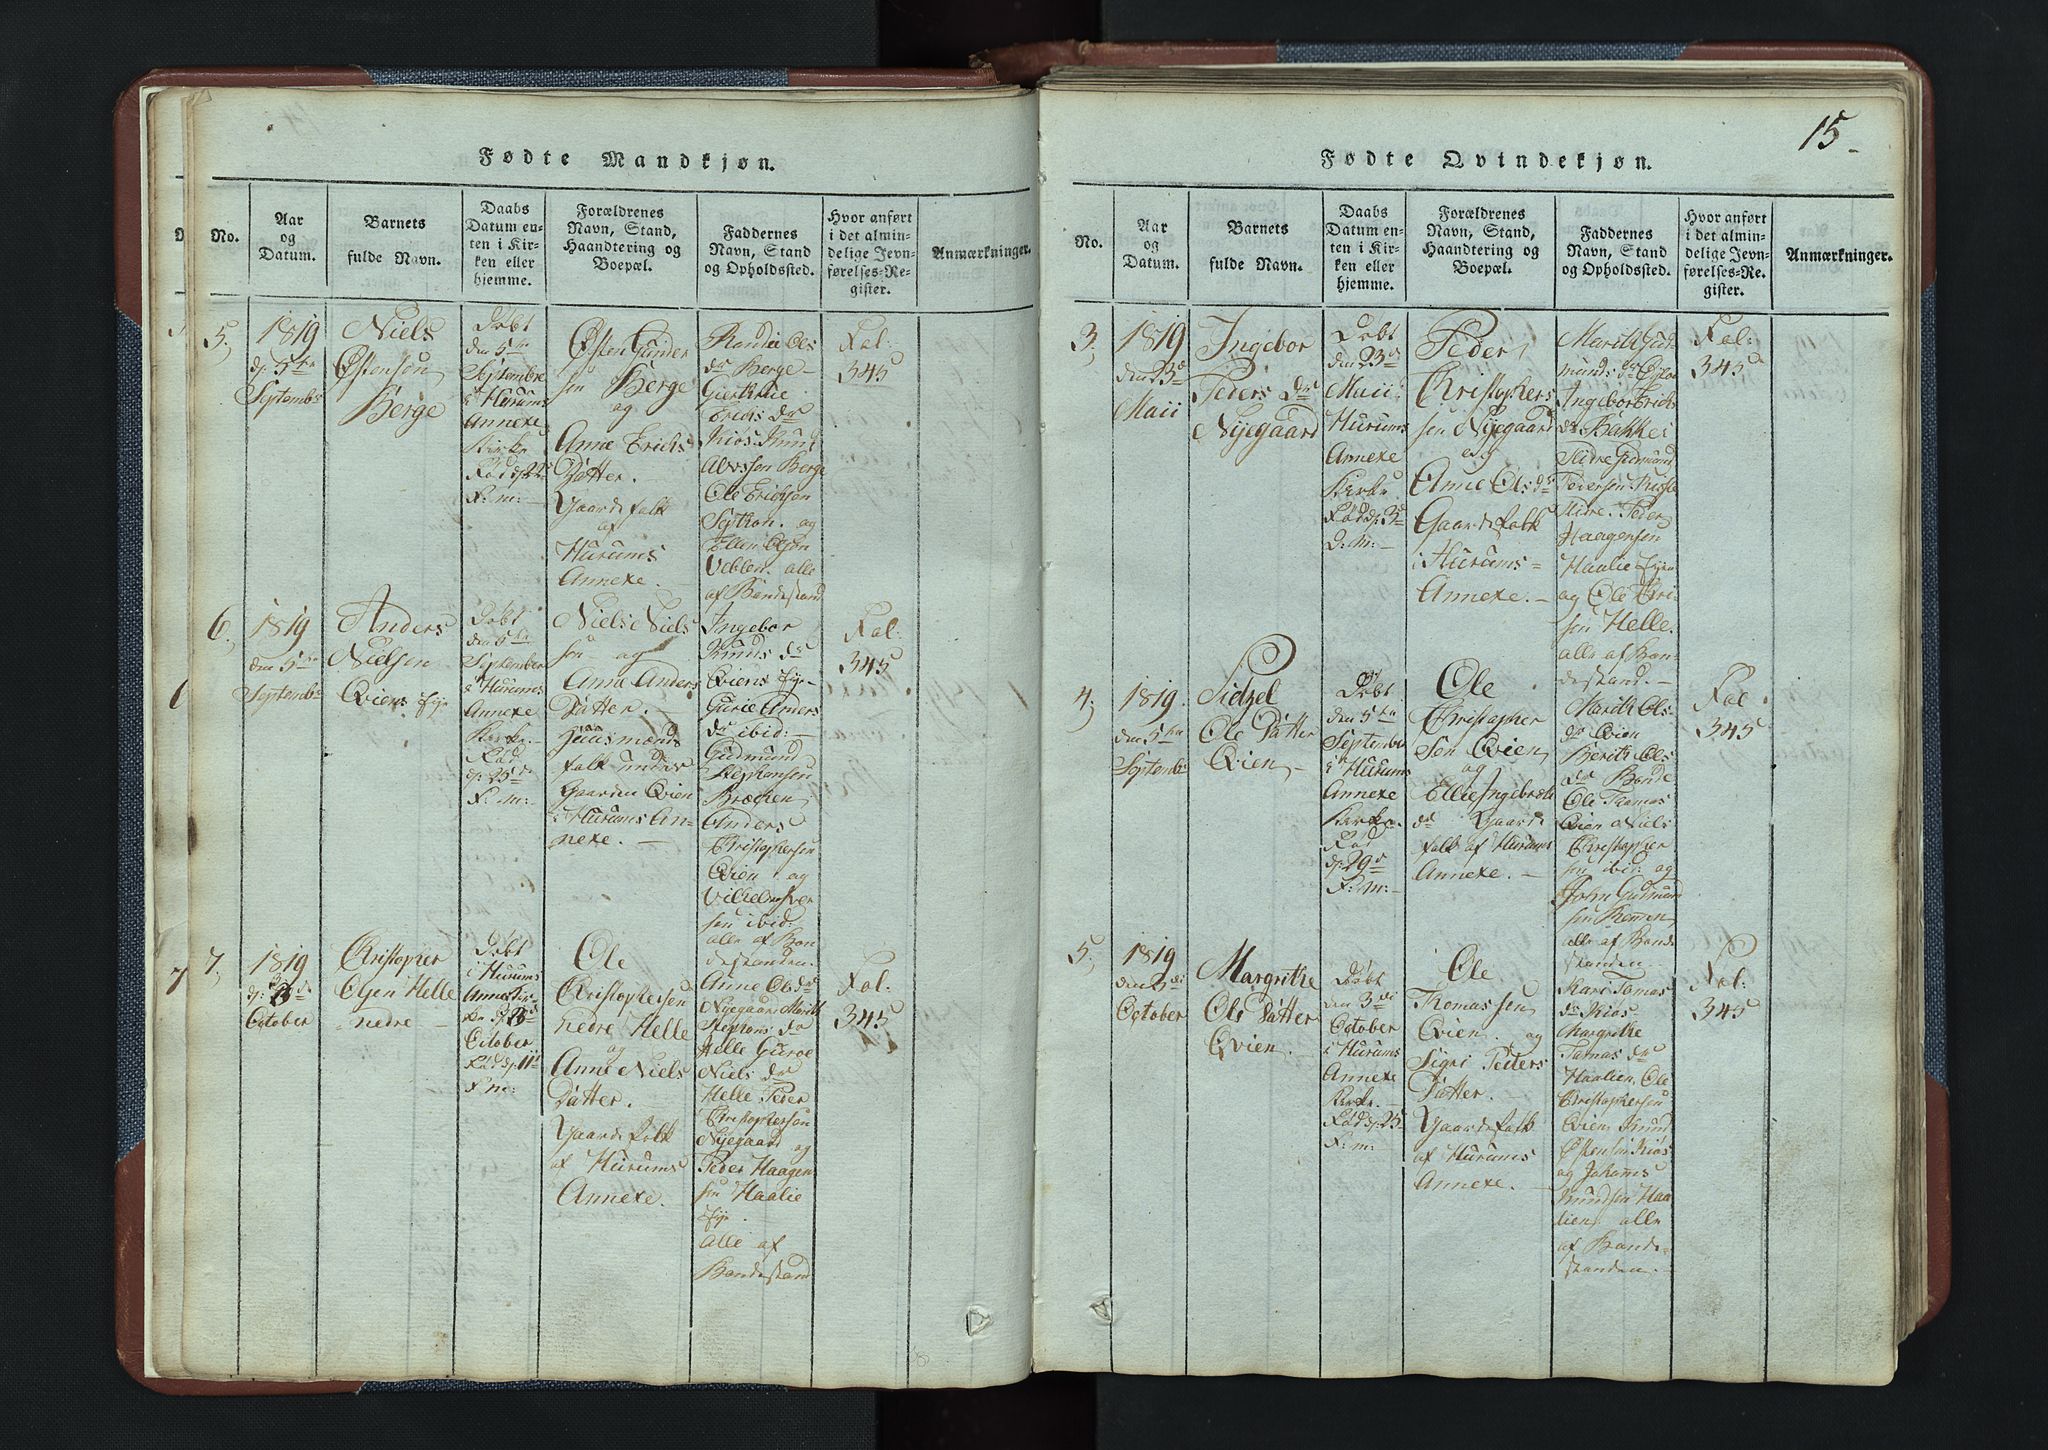 15.
Fødte Mandkjøn.
No.
Aar
og
Datum.
Barnets
fulde Navn.
Daabs
Datum en-
ten i Kir-
ken eller
hjemme.
Forældrenes
Navn, Stand,
Haandtering og
Boepæl.
Faddernes
Navn, Stand
og Opholdssted.
Hvor anført
i det almin-
delige Jevn-
førelses-Re-
gister.
Anmærkninger.
5,
1819
d: 5te
Septembr
Niels
Østensøn
Berge
Døbt
den 5te
Septembr
i Hurums
Annexe
Kirke
Fød d: 22
F: m: –
Østen Gunder
sen Berge
og
Anne Erichs
Datter. –
Gaardefolk
af
Hurums
Annexe. –
Randie Ols
dr Berge –
Giertrue
Erichs dr
Kiøs, Knud
Berge
Ole Erichsen
og
Ellen Olsøn
Veblen. alle
af Bondestand
Fol:
345
6,
1819
den 5te
Septembr
Anders
Nielsen
Qviens Eje
Døbt
den 5te
September
i Hurums
Annexe
Kirke. –
Fød
d: 25de
F: m: –
Niels Niels
søn – og
Anna Anders
Datter. –
Huusmands
folk under
Gaarden Qvien
i Hurums An-
nexe. –
Ingebor
Knuds dr
Qviens Eje –
Gurie Anders
dr ibid: –
Gudmund
Stephensen
Anders
Christophersen
Qvien og
sen ibid:
alle af Bon
destanden. –
Fol:
345
7,
1819
d: 3de
October
Christopher
Olsen Helle
nedre –
Døbt
i Hurums
Annex Kir-
ke d: 3de
October
Fød d: 11te
F. m: –
Ole
Christophersen
nedre Helle
og
Anne Niels
Datter. –
Gaardefolk
af Hurums
Annexe. –
Anne Ols dr
Nyegaard Marith
Helle Guroe
Niels dr
Helle Peder
Christophersøn
Nyegaard og
Peder Haagen
sen Haalie
Eje.
Alle af
Bondestand
Fol:
345
Fødte Qvindekjøn.
No.
Aar
og
Datum.
Barnets
fulde Navn.
Daabs
Datum en-
ten i Kir-
ken eller
hjemme.
Forældrenes
Navn, Stand,
Haandtering og
Boepæl.
Faddernes
Navn, Stand
og Opholdssted.
Hvor anført
i det almin-
delige Jevn-
førelses-Re-
gister.
Anmærkninger.
3,
1819
den 23d
Maii
Ingebor
Peders Dr
Nyegaard
Døbt
den 23d
Maii i
Hurums
Annexe
Kirke
Fød d: 3d
D: M: –
Peder
Christophers
sen Nyegaard
og
Anne Ols dr
Gaardefolk
i Hurums –
Annexe. –
Marith Gud
munds dr
Ingebor Erichs
dr Bakke
Slidre Gudmund
Pedersen
Slidre. Peder
Haagensen
Haalie Eje
og Ole Eri
sen Helle.
alle af Bon-
destand. –
Fol:
345
4,
1819.
den 5te
Septembr
Sidzel
Ole Datter
Qvien –
Døbt
den 5te
September
i Hurums
Annexe
Kirke.
Fød
d: 29d
F: M: –
Ole
Christopher
Sen Qvien
og
Ellie Ingebrets
dr Gaarde
folk af Hurums
Annexe. –
Marith Ols-
dr Qvien
Berith Ols
dr Bonde
Ole Thomas
Qvien Niels
Christopher
sen ibid: og
John Gudmund
sen Remen
alle af Bonde
standen. –
Fol.
345
5,
1819
den 3di
October
Margrithe
Ole Datter
Qvien. –
Døbt
den 3di
October
i Hurums
Annexe
Kirke. –
Fød d: 25
F: m: –
Ole
Thomassen
Qvien. og
Sigri Peders
Datter. –
Gaardefolk
af Hurums
Annexe. –
Mari Tomas
dr Kiøs
Margrithe
Tomas dr
Haalien, Ole
Christophersen
Qvien, Knud
Østensøn Kiøs
og Johannes
Knudsen Haa
lien, alle
af Bonde-
standen. –
Fol.
345